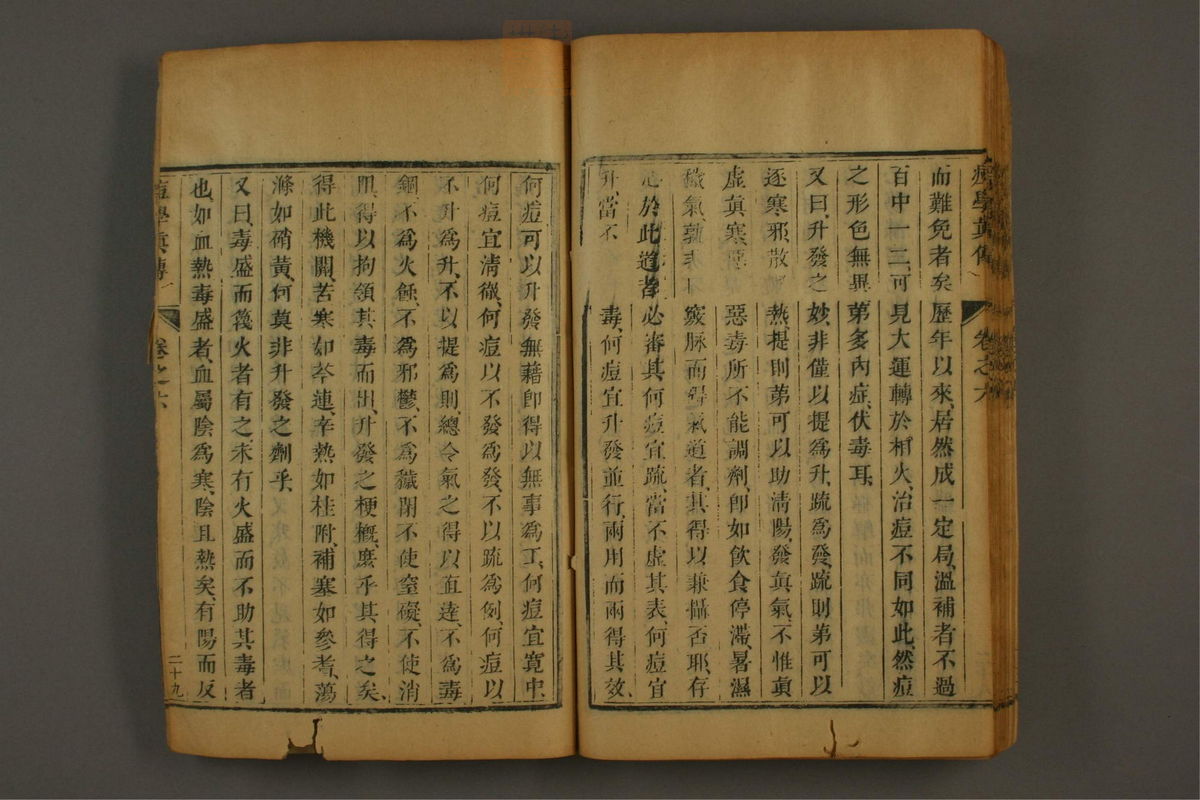 痘學真傳 卷之六
而難免者矣歷年以來、居然成一定局、溫補者不過
百中一二、可見大運轉於相火、治痘不同如此、然痘
之形色無異、第多內症、伏毒耳、
又曰、升發之妙、非僅以提爲升、疏爲發、疏則第可以
逐寒邪、散熱、提則第可以助淸陽、發眞氣、不惟眞
虛眞寒、惡毒所不能調劑、卽如飲食停滯、暑濕
穢氣、竅脉而得氣道者、其得以兼攝否耶、存
心於此道者、必審其何痘宜疏、當不虛其表、何痘宜
升、當不毒、何痘宜升發並行、兩用而兩得其效、
何痘可以升發無藉卽得以無事爲工、何痘宜寬中、
何痘宜淸徹、何痘以不發爲發、不以疏爲例、何痘以
不升爲升、不以提爲則、總令氣之得以直達、不爲毒
錮、不爲火蝕、不爲邪鬱、不爲穢閉、不使窒礙、不使消
阻、得以拘領其毒而出、升發之梗槪、庶乎其得之矣、
得此機關、苦寒如芩連、辛熱如桂附、補塞如參耆、蕩
滌如硝黃、何莫非升發之劑乎、
又曰、毒盛而發火者有之、未有火盛而不助其毒者
也、如血熱毒盛者、血屬陰爲寒、陰且熱矣、有陽而反
痘學眞傳 卷之六 二十九